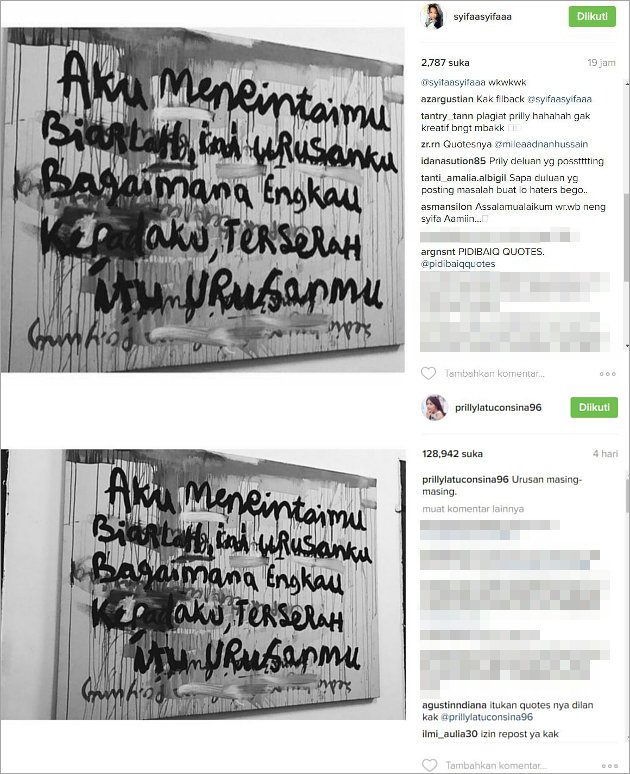 AKU MENCINTAIMU
BIARLAH, ini URUSANKU
BAGAIMANA ENGKAU
KEPADAKU, TERSERAH
ITU URUSANMU
syifaasyifaaa
Diikuti
2,787 suka
19 jam
@syifaasyifaaa wkwkwk
azargustian Kak filback @syifaasyifaaa
tantry_tann plagiat prilly hahahah gak
kreatif bngt mbakk
zr.rn Quotesnya @mileaadnanhussain
idanasution85 Prily deluan yg possttttting
tanti_amalia.albigil Sapa duluan yg
posting masalah buat lo haters bego..
asmansilon Assalamualaikum wr.wb neng
syifa Aamiin...
argnsnt PIDIBAIQ QUOTES.
@pidibaiqquotes
Tambahkan komentar...
AKU MENCINTAIMU
BIARLAH, ini URUSANKU
BAGAIMANA ENGKAU
KEPADAKU, TERSERAH
ITU URUSANMU
prillylatuconsina96
Diikuti
128,942 suka
4 hari
prillylatuconsina96 Urusan masing-
masing.
muat komentar lainnya
agustinndiana itukan quotes nya dilan
kak @prillylatuconsina96
ilmi_aulia30 izin repost ya kak
Tambahkan komentar...